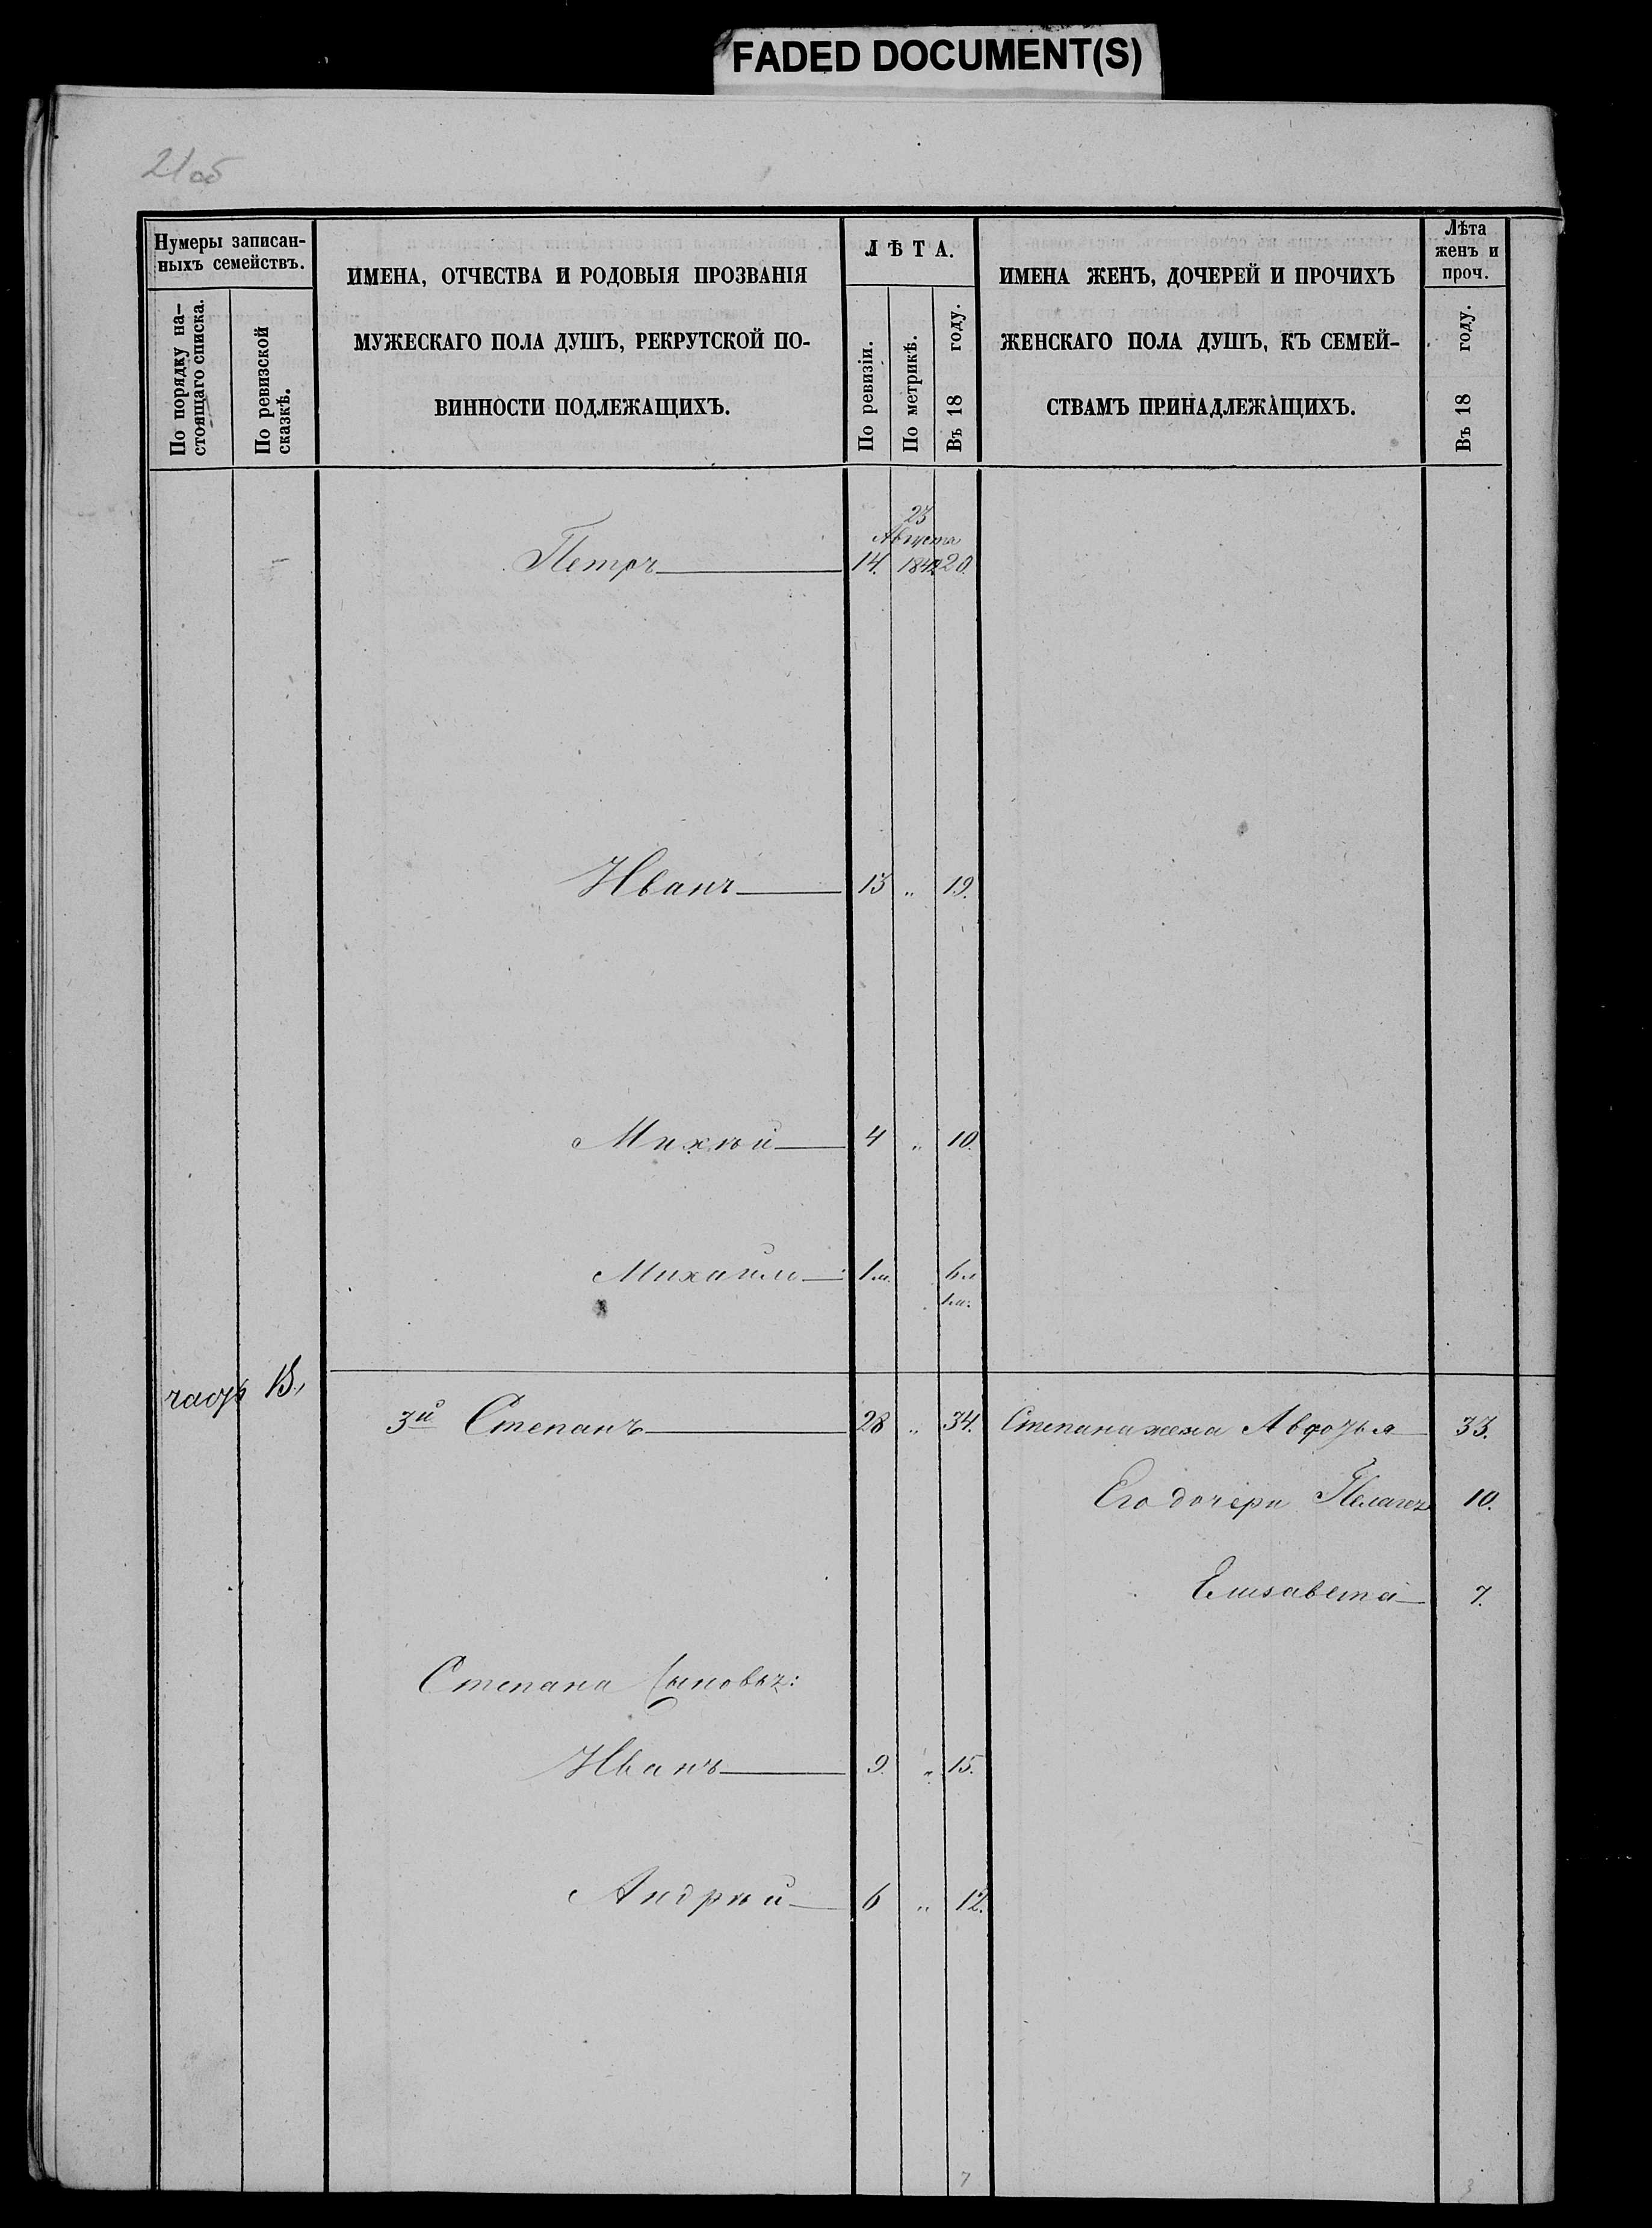 FADED DOCUMENT(S)
21об
Нумеры записан-
ныхъ семействъ.
По порядку на-
стоящаго списка.
По ревизской
сказкѣ.
ИМЕНА, ОТЧЕСТВА И РОДОВЫЯ ПРОЗВАНІЯ
МУЖЕСКАГО ПОЛА ДУШЪ, РЕКРУТСКОЙ ПО-
ВИННОСТИ ПОДЛЕЖАЩИХЪ.
ЛѢТА.
По ревизіи.
По метрикѣ.
Въ 18 году.
ИМЕНА ЖЕНЪ, ДОЧЕРЕЙ И ПРОЧИХЪ
ЖЕНСКАГО ПОЛА ДУШЪ, КЪ СЕМЕЙ-
СТВАМЪ ПРИНАДЛЕЖАЩИХЪ.
Лѣта
женъ и
проч.
Въ 18 году.
23
Августа
Петръ 14. 1842 20.
Иванъ 13 " 19.
Михѣй 4 " 10.
Михаилъ 1м. 6л
1м.
13.,
3й Степанъ 28 " 34. Степана жена Авдотья 33.
Его дочери Пелагея 10.
Елизавета 7.
Степана сыновья:
Иванъ 9. " 15.
Андрѣй 6 " 12.
7 3